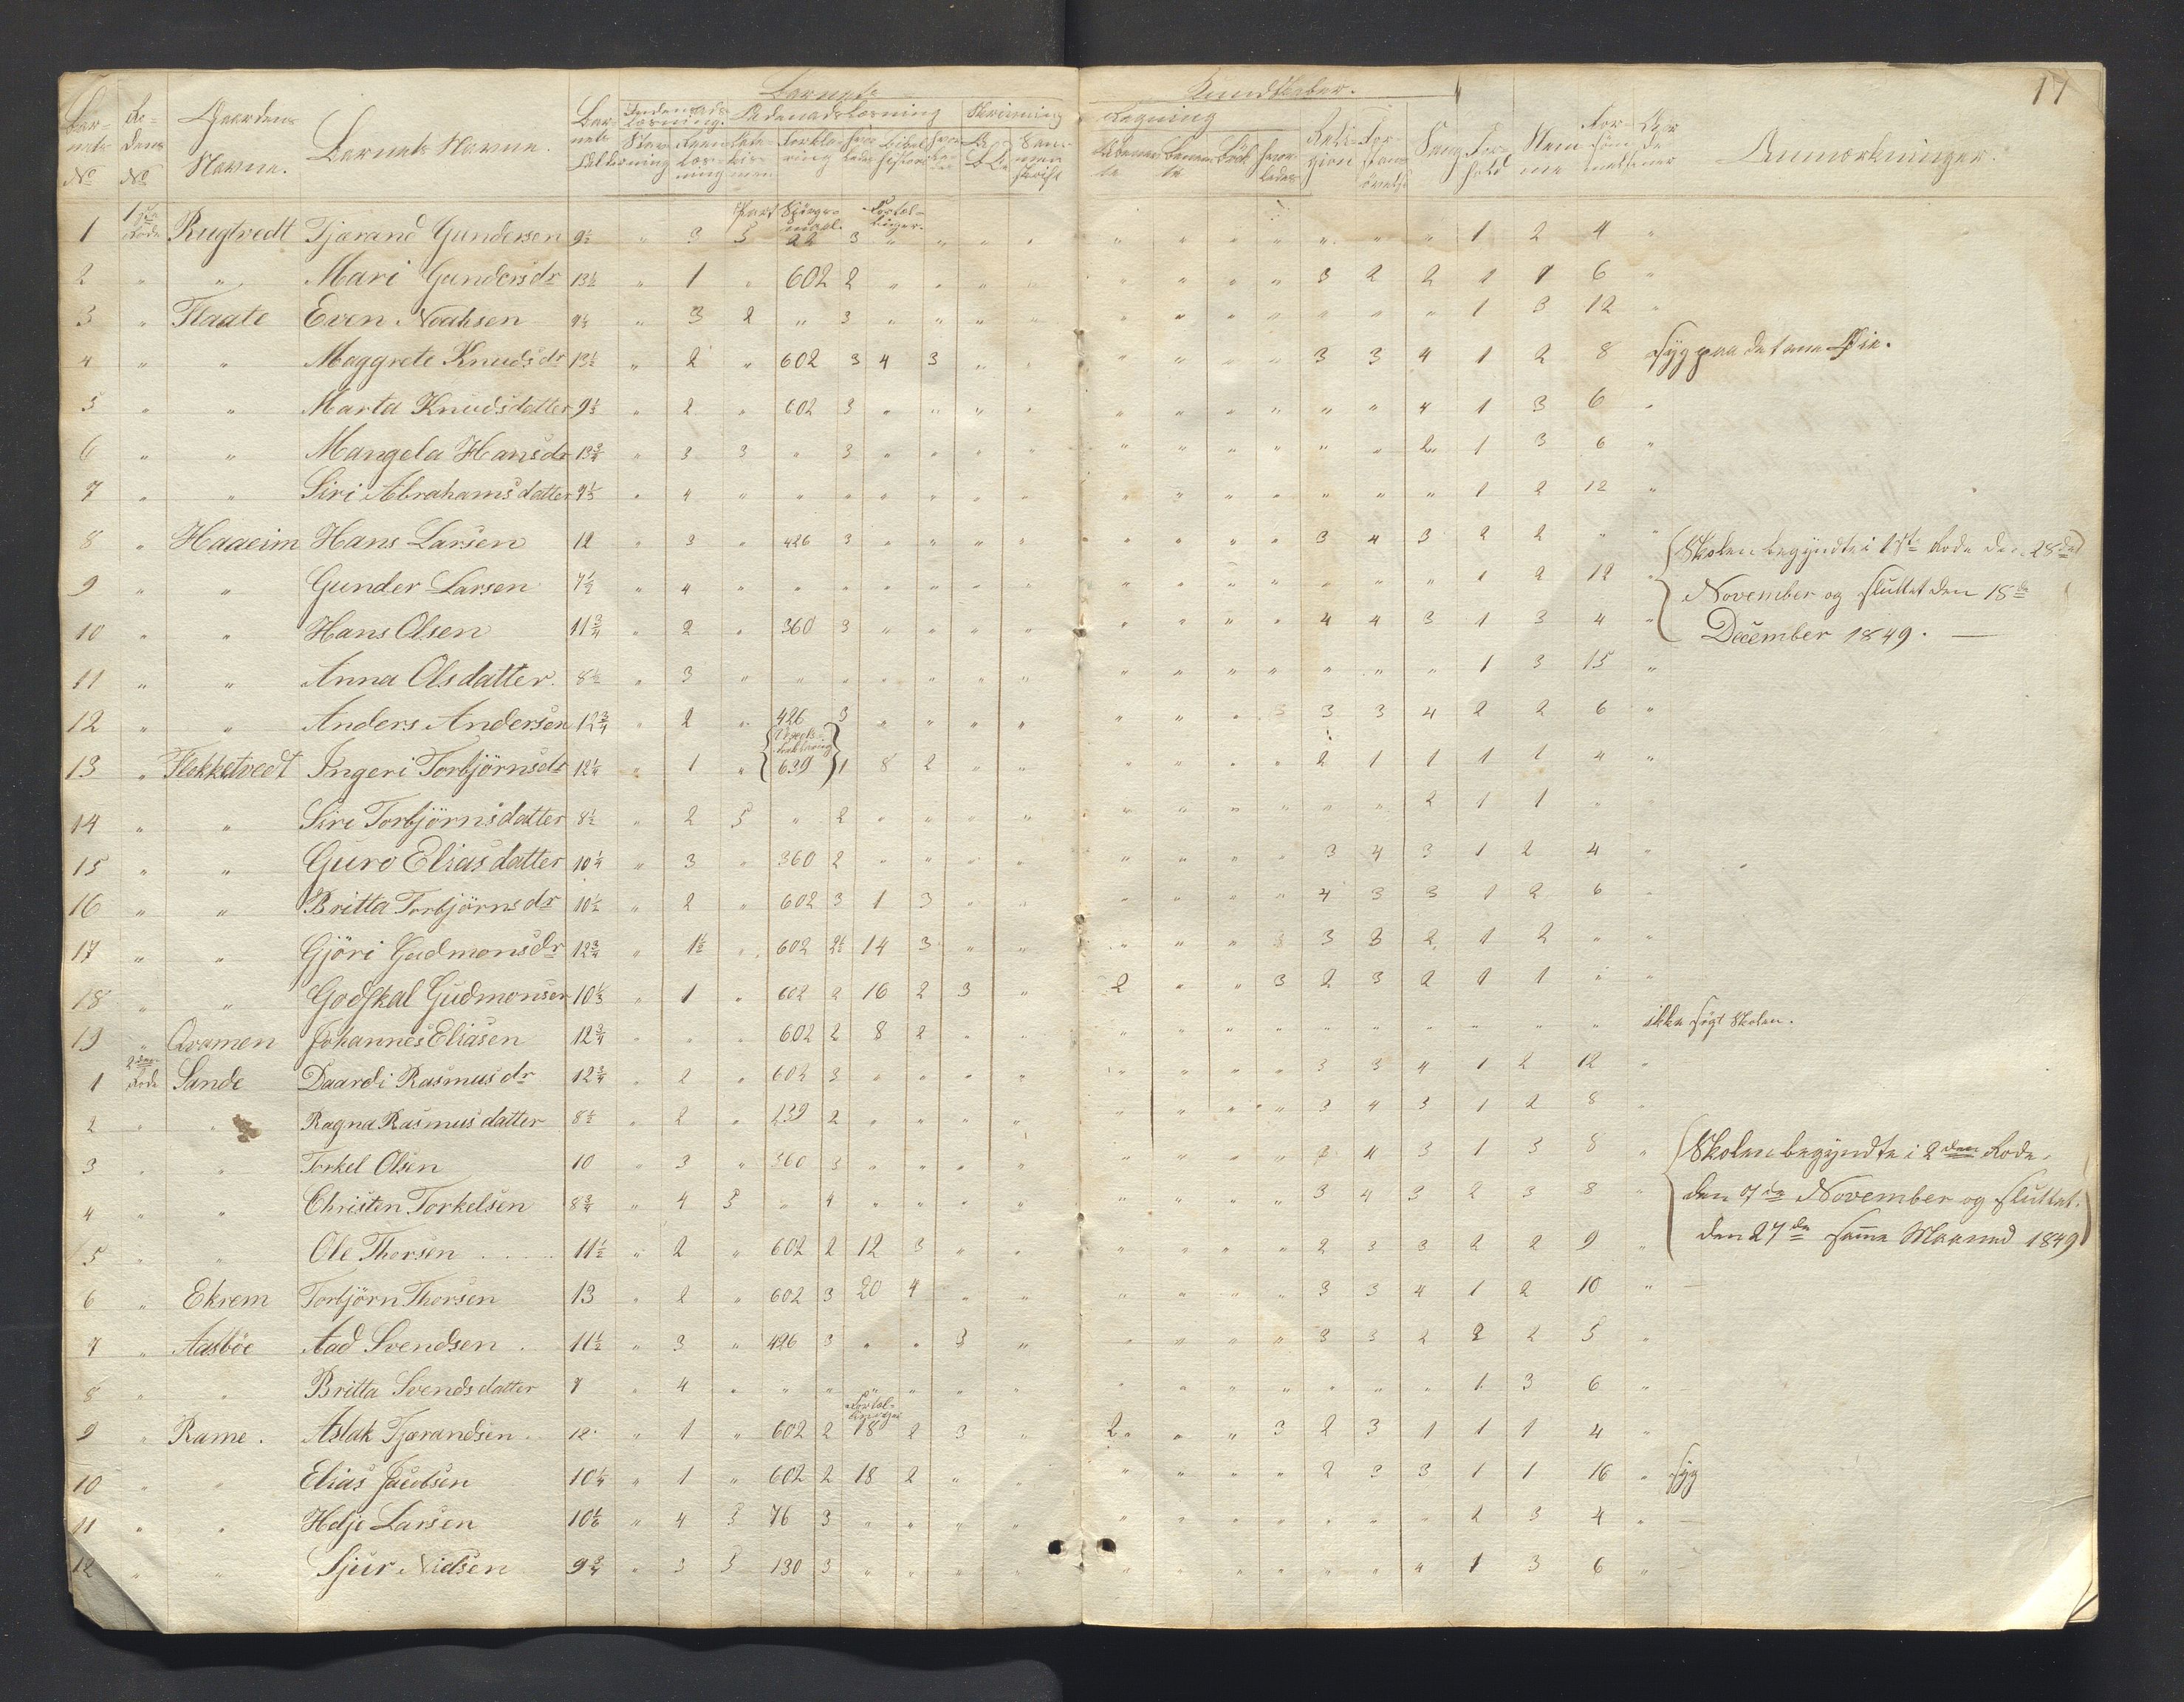 17
Barnets Kundskaber.
Barnets No Rodens No Gaardens Navne. Barnets Navne. Barnets Alder Indenadslæsning. Udenadslæsning Skrivning Regning Religion Sang Forhold Nemme Forsömmelser Anmærkninger.
Part Spörgsmaal Fortællinger
1 1ste Rode Rugtvedt Tjærand Gundersen 9½ " 3 5 22 3 " " " " " " " " " " " 1 2 4 "
2 " " Mari Gundersdr 13½ " 1 " 602 2 " " " " " " " " 3 2 2 1 1 6 "
3 " Flaate Even Noahsen 9½ " 3 2 " 3 " " " " " " " " " " " 1 3 12 "
4 " " Maggrete Knudsdr 13½ " 2 " 602 3 4 3 " " " " " " 3 3 4 1 2 8 Syg paa det ene Öie.
5 " " Marta Knudsdatter 9⅓ " 2 " 602 3 " " " " " " " " " " 4 1 3 6 "
6 " " Mangela Hansdr 13¾ " 3 3 " 3 " " " " " " " " " " 2 1 3 6 "
7 " " Siri Abrahamsdatter 9⅓ " 4 " " " " " " " " " " " " " " 1 2 12 "
8 " Haaeim Hans Larsen 12 " 3 " 426 3 " " " " " " " " 3 4 3 2 2 " "
Skolen begyndte i 1ste Rode den 28de
9 " " Gunder Larsen 7½ " 4 " " " " " " " " " " " " " " 1 2 12 "
November og sluttet den 18de
10 " " Hans Olsen 11¾ " 2 " 360 3 " " " " " " " " 4 4 3 1 3 4 "
December 1849.
11 " " Anna Olsdatter. 8½ " 3 " " " " " " " " " " " " " " 1 3 15 "
12 " " Anders Andersen 12¾ " 2 " 426 3 " " " " " " " 3 3 3 4 2 2 6 "
13 " Flekketvedt Ingeri Torbjörnsdr 12¼ " 1 " 639 1 8 2 " " " " " " 2 1 1 1 1 4 "
14 " " Siri Torbjörnsdatter 8½ " 2 5 " 2 " " " " " " " " " " 2 1 1 " "
15 " " Guro Eliasdatter 10¼ " 3 " 360 2 " " " " " " " " 3 4 3 1 2 4 "
16 " " Britta Torbjörnsdr 10½ " 2 " 602 3 1 3 " " " " " " 4 3 3 1 2 6 "
17 " " Gjöri Gudmonsdr 12¾ " 1½ " 602 2½ 14 3 " " " " " 3 3 3 2 1 2 " "
18 " " Godskal Gudmonsen 10⅓ " 1 " 602 2 16 2 3 " 2 " " 3 2 3 2 1 1 " "
19 " Qvamen Johannes Eliasen 12¾ " " " 602 2 8 2 " " " " " " " " " " " " ikke sögt Skolen.
1 2den Rode Sande Daardi Rasmusdr 12¾ " 2 " 602 3 " " " " " " " " 3 3 4 1 2 12 "
2 " " Ragna Rasmusdatter 8½ " 2 " 239 2 " " " " " " " " 3 4 3 1 2 8 "
3 " " Torkel Olsen 10 " 3 " 360 3 " " " " " " " " 4 3 1 3 8 "
Skolen begyndte i 2den Rode,
4 " " Christen Torkelsen 8¾ " 4 5 " 4 " " " " " " " " 3 4 3 2 3 8 "
den 7de November og sluttet.
5 " " Ole Thorsen 11½ " 2 " 602 2 12 3 " " " " " " 2 3 3 2 2 9 "
den 27de samme Maaned 1849
6 " Ekrem Torbjörn Thorsen 13 " 2 " 602 3 20 4 " " " " " " 3 3 4 1 2 10 "
7 " Aasböe Aad Svendsen 11½ " 3 " 426 3 " " 3 " " " " " 3 3 2 2 2 5 "
8 " " Britta Svendsdatter 7 " 4 " " " " " " " " " " " " " " 1 3 6 "
Fortællinger
9 " Rame. Aslak Tjærandsen 12 " 1 " 602 2 18 2 3 " 2 " " 3 2 3 1 1 1 4 "
10 " " Elias Jacobsen 10¼ " 1 " 602 2 18 2 " " " " " " 2 3 3 1 1 16 " Syg
11 " " Helje Larsen 10⅙ " 4 3 76 3 " " " " " " " " " " " 2 3 4 "
12 " " Sjur Nielsen 9¾ " 3 5 130 3 " " " " " " " " " " 4 1 3 6 "